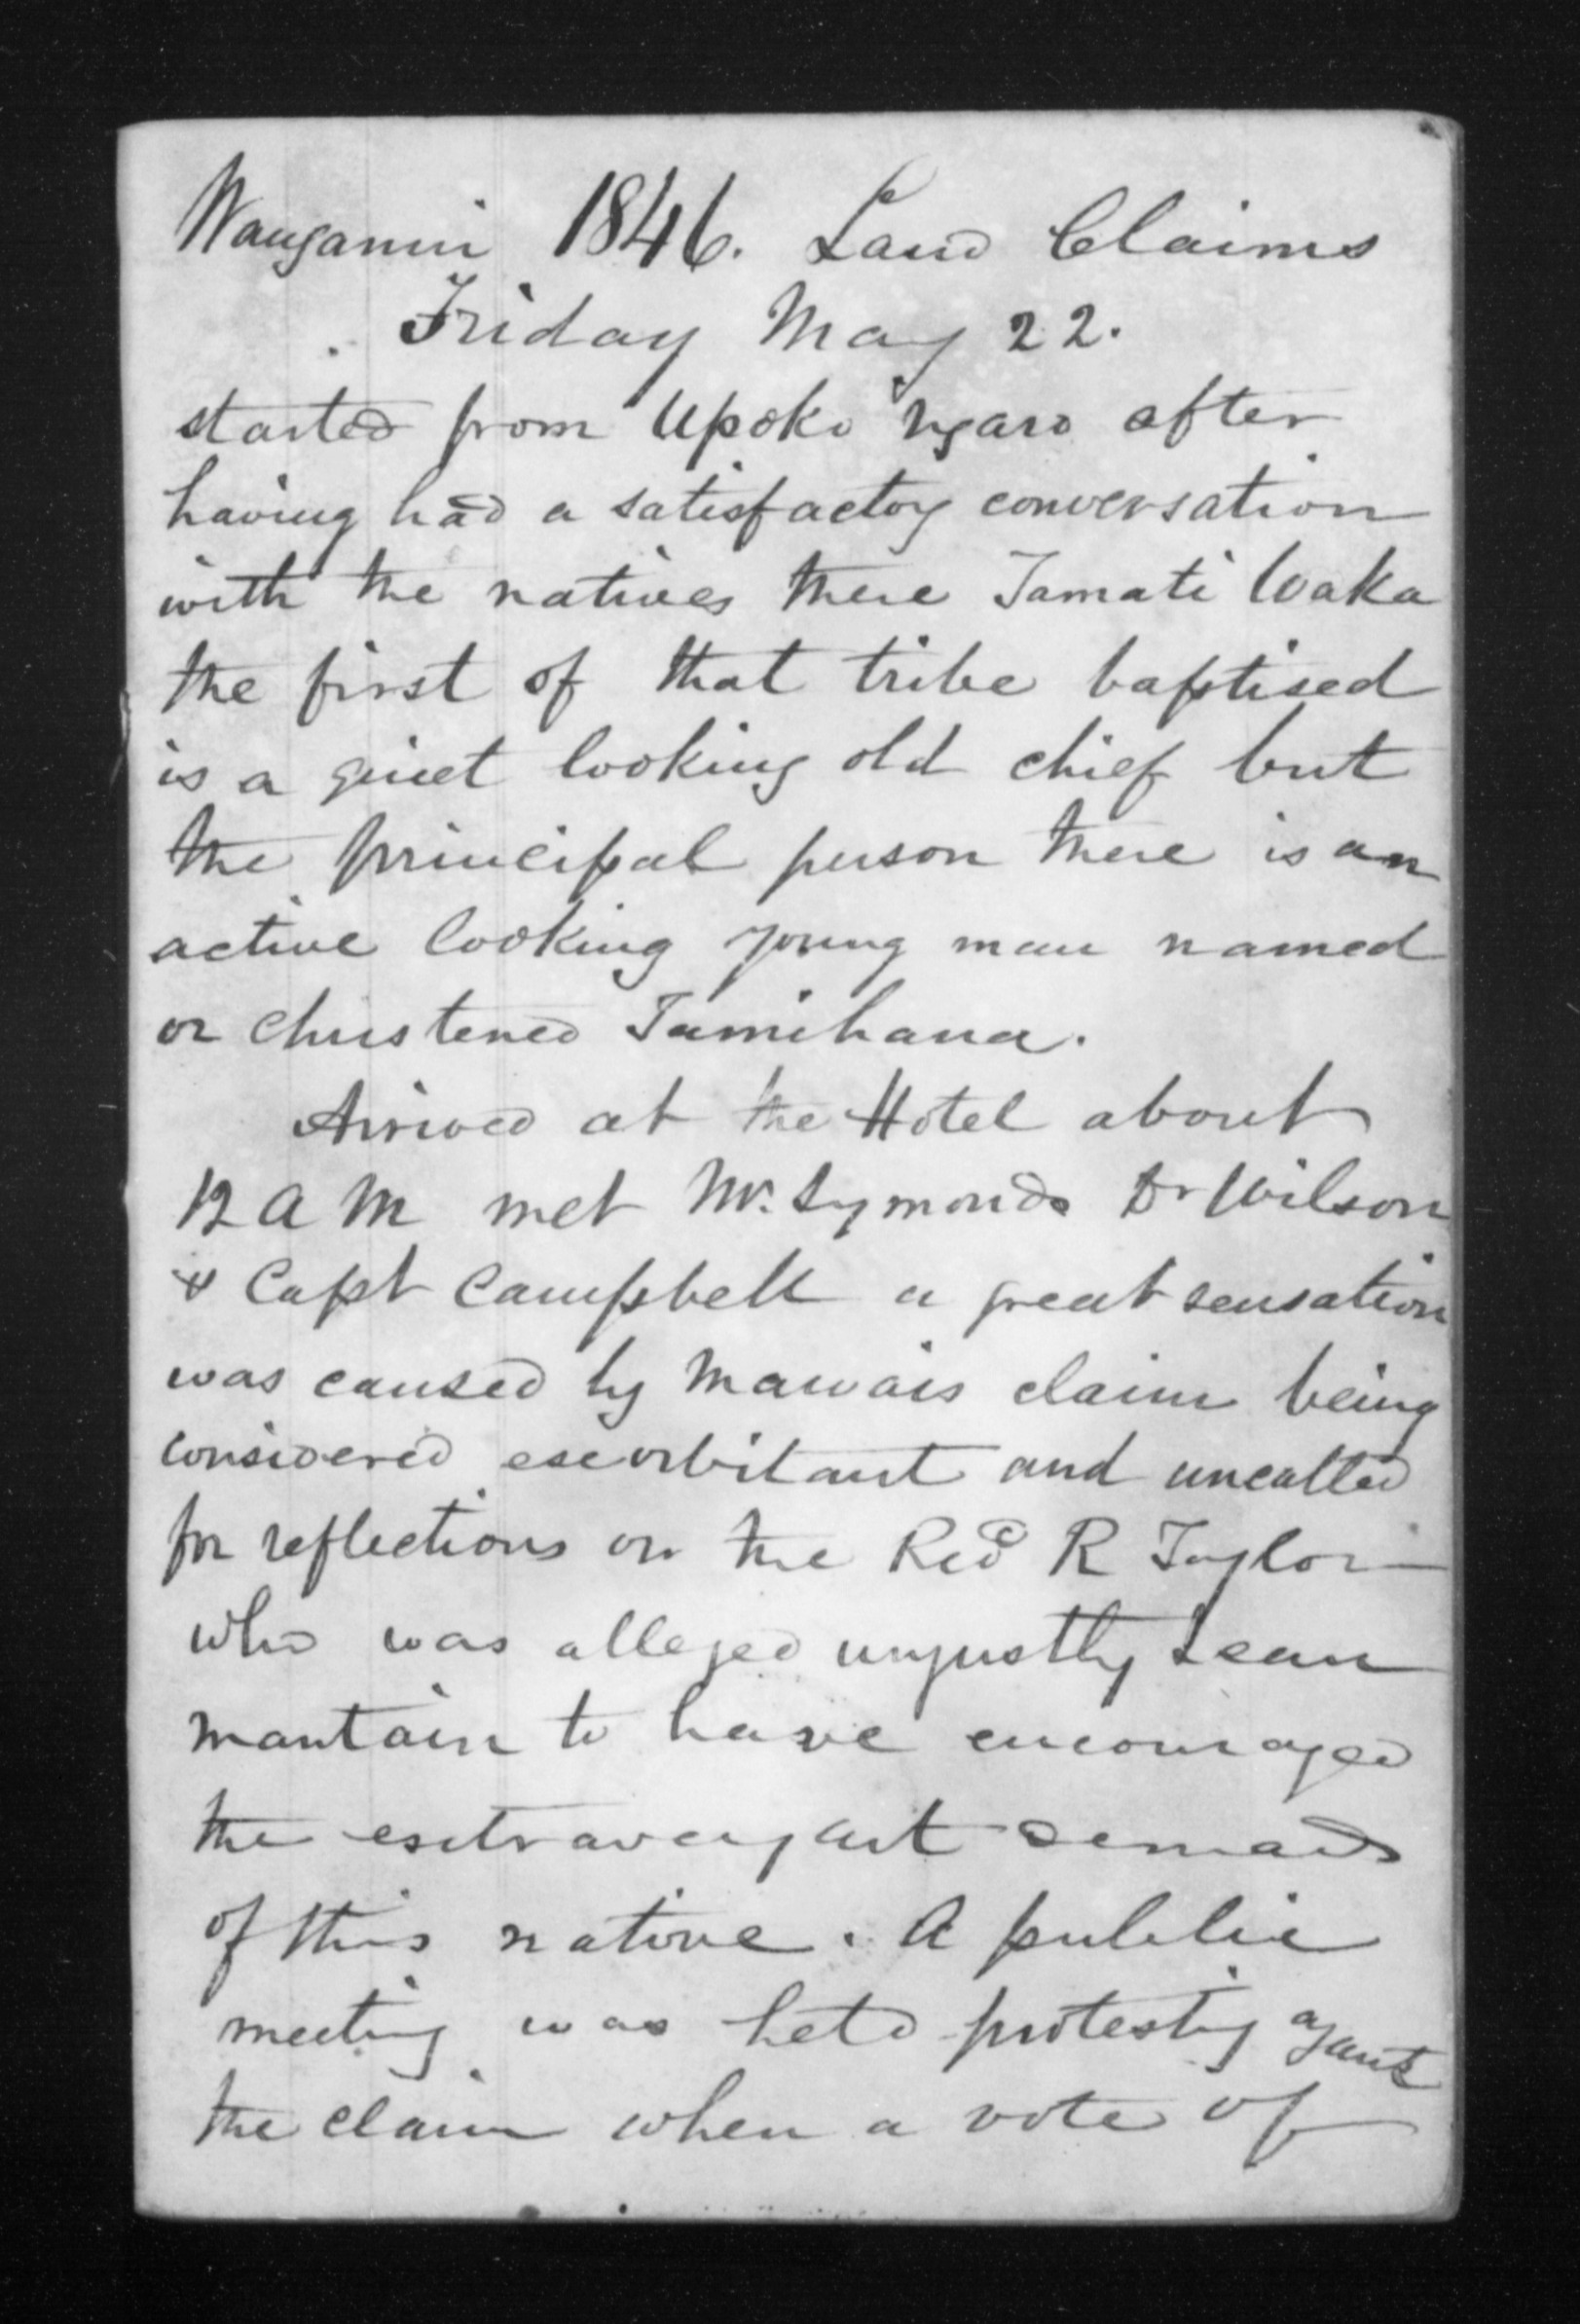 Wanganui 1846. Land Claims
Friday May 22.
started from Upoko ngaro after
having had a satisfactory conversation
with the natives there Tamati Waka
the first of that tribe baptised
is a quiet looking old chief but
the principal person there is an
active looking young man named
or christened Tamihana.
Arrived at the Hotel about
12 A M met Mr. Symonds Dr Wilson
& Capt Campbell a great sensation
was caused by Mawais claim being
considered exorbitant and uncalled
for reflections on the Revd R Taylor
who was alleged unjustly I can
mantain to have encouraged
the extravagant demands
of this native. A public
meeting was held protesting
the claim when a vote of